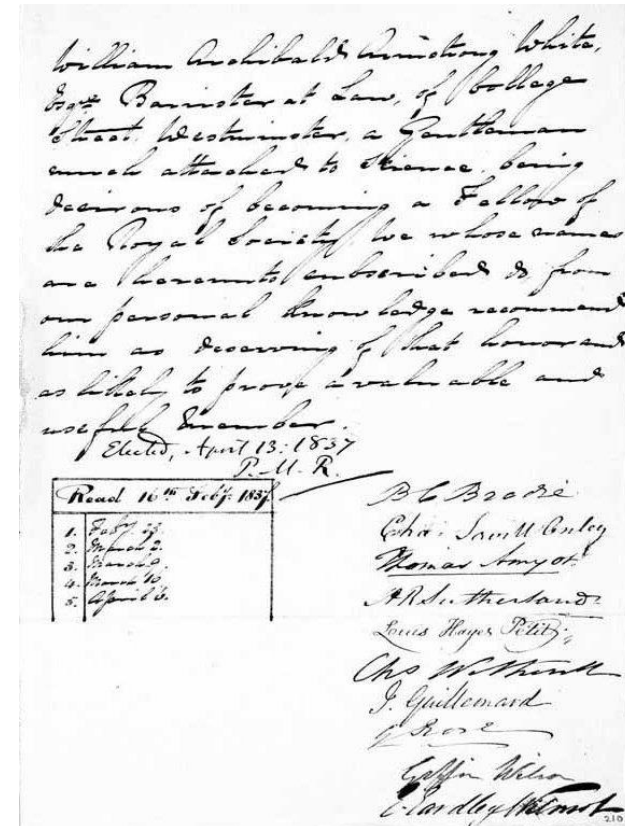 William Archibald Armstrong White,
Esqre. Barrister at Law, of College
Street, Westminster, a Gentleman
much attached to Science, being
desirous of becoming a Fellow of
the Royal Society, We whose names
are hereunto subscribed do from
our personal knowledge recommend
him as deserving of that honor and
as likely to prove a valuable and
useful Member.
Elected, April 13: 1837
P. M. R.
Read 16th Feby. 1837.
1. Feby. 23.
2. March 2.
3. March 9.
4. March 16.
5. April 6.
B C Brodie
Thomas Amyot
A R Sutherland
Louis Hayes Petit
J. Guillemard
G Rose
Giffin Wilson
E Eardley Wilmot
210